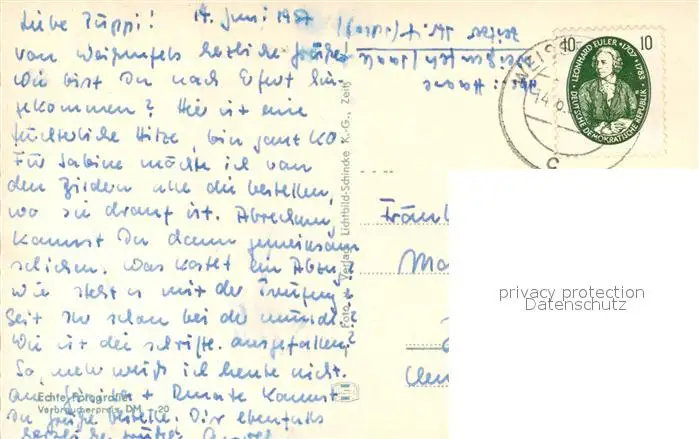 Liebe Puppi! 14. Juni 1957
von Weißenfels herzliche Grüße!
Wie bist Du nach Erfurt hin-
gekommen? Hier ist eine
fürchterliche Hitze, bin ganz KO.
Für Sabine möchte ich von
den Bildern alle die bestellen,
wo sie drauf ist. Abrechnen
kannst Du dann gemeinsam
schicken. Was kostet ein Abzug?
Wie steht es mit der Prüfung?
Seid Ihr schon bei der mündl.?
Wie ist die schriftl. ausgefallen?
So, mehr weiß ich heute nicht.
An + Renate kannst
Du Grüße bestellen. Dir ebenfalls
herzliche Grüße
Echte Fotografie
Verbraucherpreis DM 20
Foto u. Verlag Lichtbild-Schincke K.-G., Zeitz
10 10
LEONHARD EULER · 1707 · 1783
DEUTSCHE DEMOKRATISCHE REPUBLIK
WEISS
14.6.
c
Fräul
privacy protection
Datenschutz